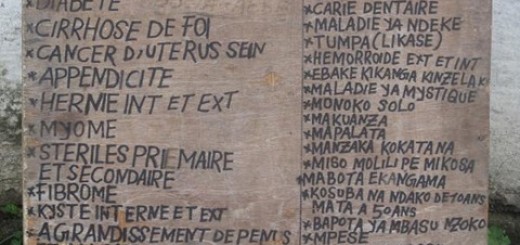 *DIABETE
*CIRRHOSE DE FOI
*CANCER D'UTERUS SEIN
*APPENDICITE
*HERNIE INT ET EXT
*MYOME
*STERILES PRIEMAIRE
ET SECONDAIRE
*FIBROME
*KYSTE INTERNE ET EXT
*AGRANDISSEMENT DE PENUS
*CARIE DENTAIRE
*MALADIE YA NDEKE
*TUMPA (LIKASE)
*HEMORROIDE EXT ET INT
*EBAKE KIKANGA KINZELA
*MALADIE YA MYSTIQUE
*MONOKO SOLO
*MAKUANZA
*MAPALATA
*MANZAKA KOKATANA
*MIBO MOLILI PE MIKOSA
MABOTA EKANGAMA
*KOSUBA NA NDAKO DE 10 ANS
MATA A 50 ANS
*BAPOTA YA MBASU NZOKO
*MPESE